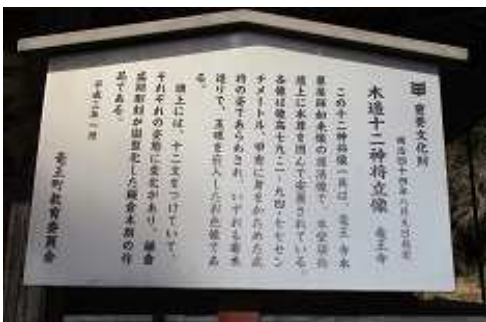 重要文化財
明治四十四年八月九日指定
木造十二神将立像 竜王寺
この十二神将像一具は、竜王寺本
尊薬師如来像の
頭上に本尊を囲んで安置されている。
各像は像高七九・二〜九四・七センチ
チメートル、甲冑に身をかためた武
将の姿であらわされ、いずれも寄木
造りで、玉眼を嵌入した彩色像であ
る。
頭上には、十二支をつけていて、
それぞれの姿態に変化があり、鎌倉
盛期彫刻が固型化した鎌倉末期の作
品である。
平成二年一月
竜王町教育委員会